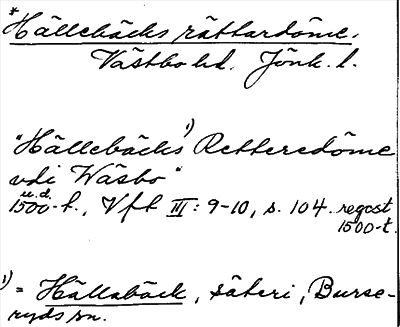 *Hällebäcks rättardöme.
Västbo hd. Jönk. l.
"Hällebäcks¹⁾ Retteredöme
vdi Wäsbo"
u.d.
1500-t., Vft III: 9-10, s. 104. regest
1500-t.
1) = Hällabäck, säteri, Burse-
ryds sn.